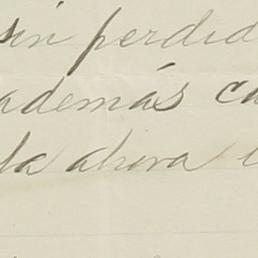 sin perdid
además ca
la ahora l